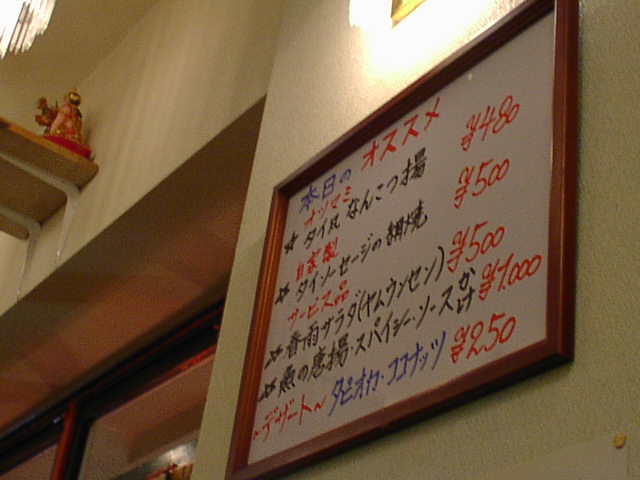 本日の オススメ
オツマミ
☆ タイ風 なんこつ揚 ¥480
自家製
☆ タイソーセージの網焼 ¥500
サービス品
☆ 春雨サラダ(ヤムウンセン) ¥500
☆ 魚の唐揚・スパイシー・ソースかけ ¥1.000
~デザート~ タピオカ・ココナッツ ¥250